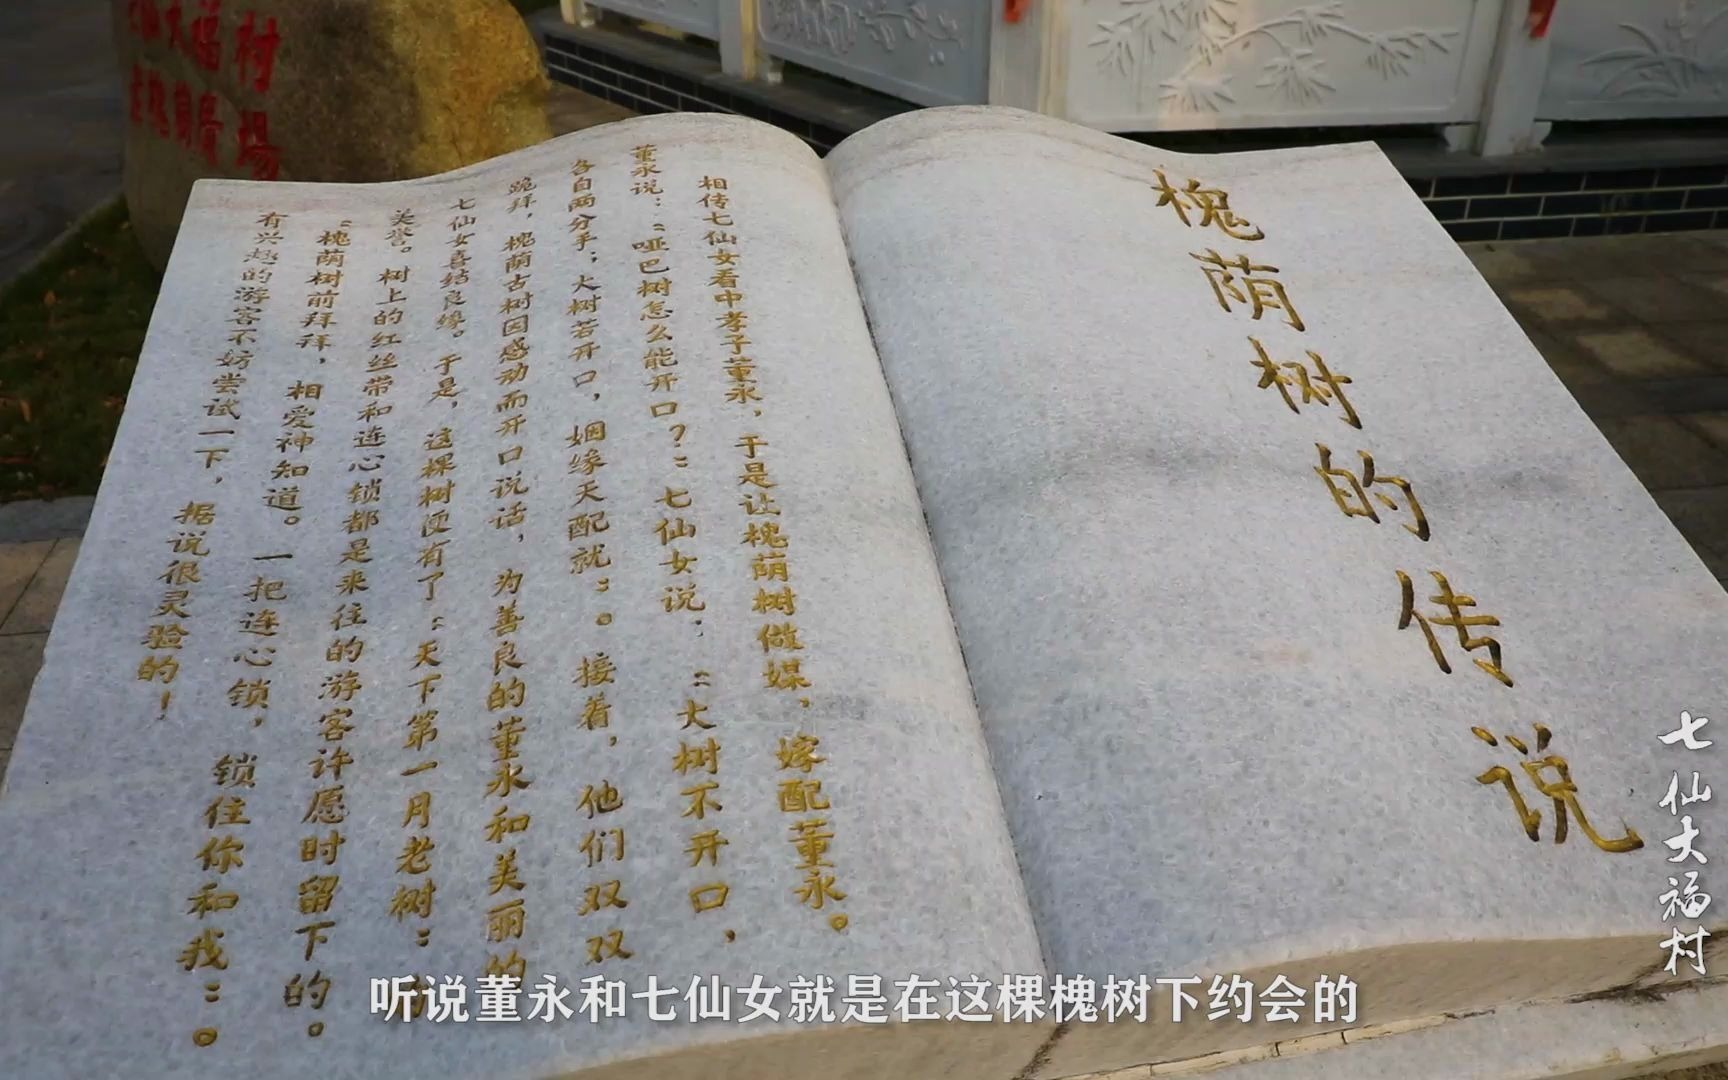 槐荫树的传说
相传七仙女看中孝子董永，于是让槐荫树做媒，嫁配董永。
董永说："哑巴树怎么能开口？"七仙女说："大树不开口，
各自两分手；大树若开口，姻缘天配就"。接着，他们双双
跪拜，槐荫古树因感动而开口说话，为善良的董永和美丽的
七仙女喜结良缘。于是，这棵树便有了"天下第一月老树"的
美誉。树上的红丝带和连心锁都是来往的游客许愿时留下的。
"槐荫树前拜拜，相爱神知道。一把连心锁，锁住你和我"。
有兴趣的游客不妨尝试一下，据说很灵验的！
村
场
大福
七仙大福村
听说董永和七仙女就是在这棵槐树下约会的